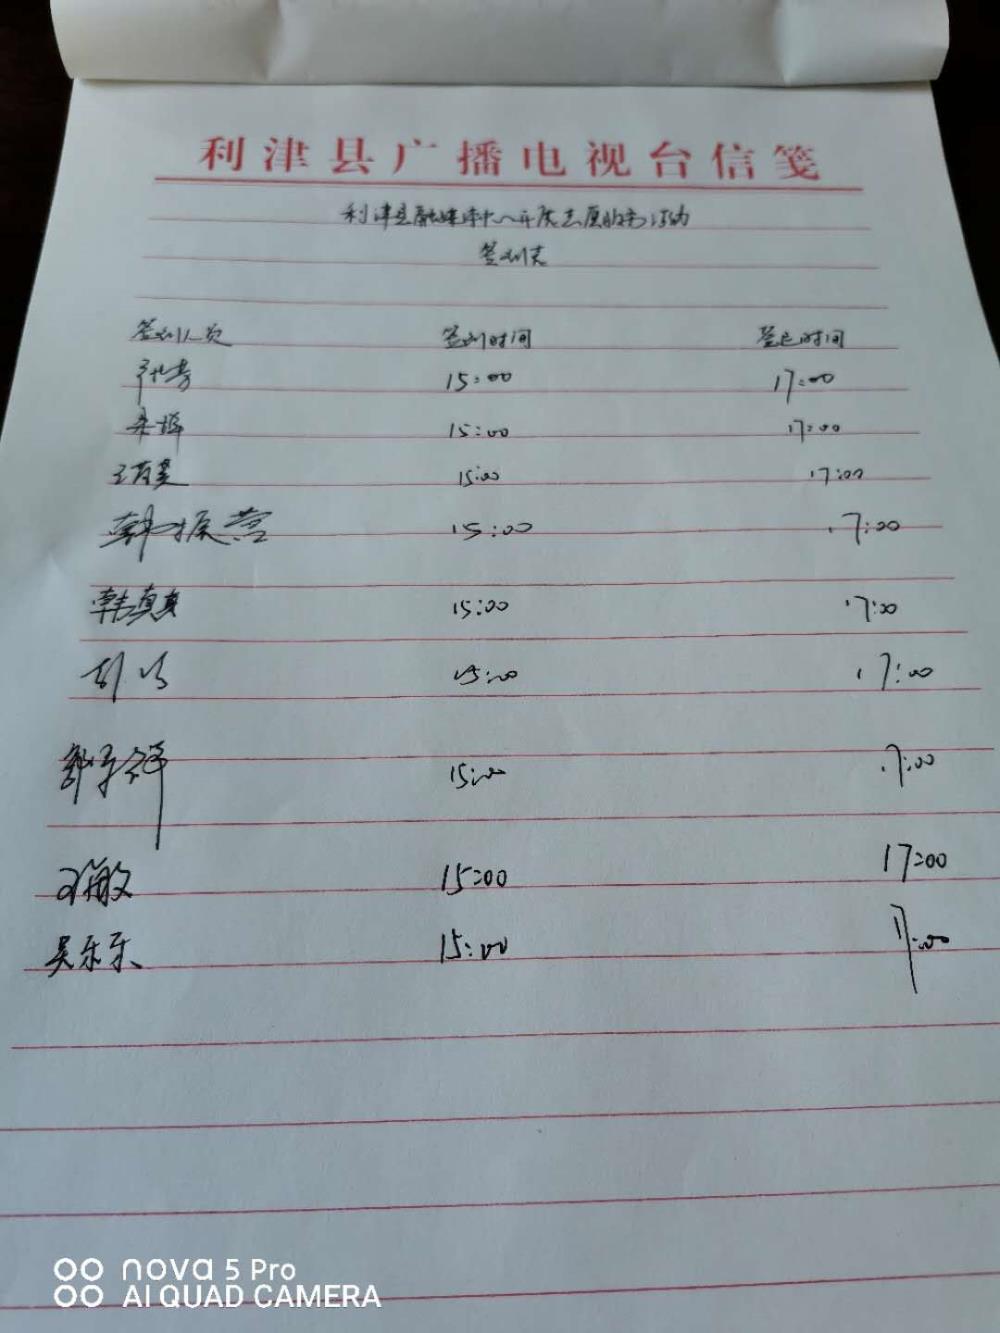 利津县广播电视台信笺
利津县融媒体中心开展志愿服务活动
签到表
签到人员 签到时间 签退时间
15:00 17:00
15:00 17:00
15:00 17:00
韩振营 15:00 17:00
韩真真 15:00 17:00
15:00 17:00
15:00 17:00
15:00 17:00
吴乐乐 15:00 17:00
nova 5 Pro
AI QUAD CAMERA